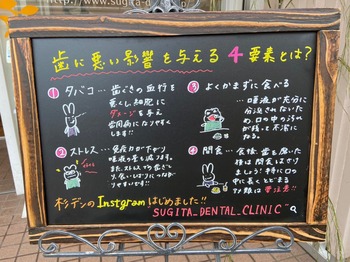 www.sugita-d
歯に悪い影響を与える4要素とは?
① タバコ…歯ぐきの血行を
悪くし細胞に
ダメージを与え
歯周病になりやすく
します!!
② ストレス…免疫力が下がり
唾液の量も減ります。
また、ストレスから歯ぎ
しり、食いしばりにつなが
りやすいです!!
③ よくかまずに食べる
…唾液が充分に
分泌されないた
め、口の中の汚れ
が残って不潔にな
る。
④ 間食…食後、歯を磨いた
後は間食はさけ
ましょう!特に口の
中に長くとどまる
もの 飴は要注意!!
杉デンのInstgramはじめました!!
SUGITA_DENTAL_CLINIC